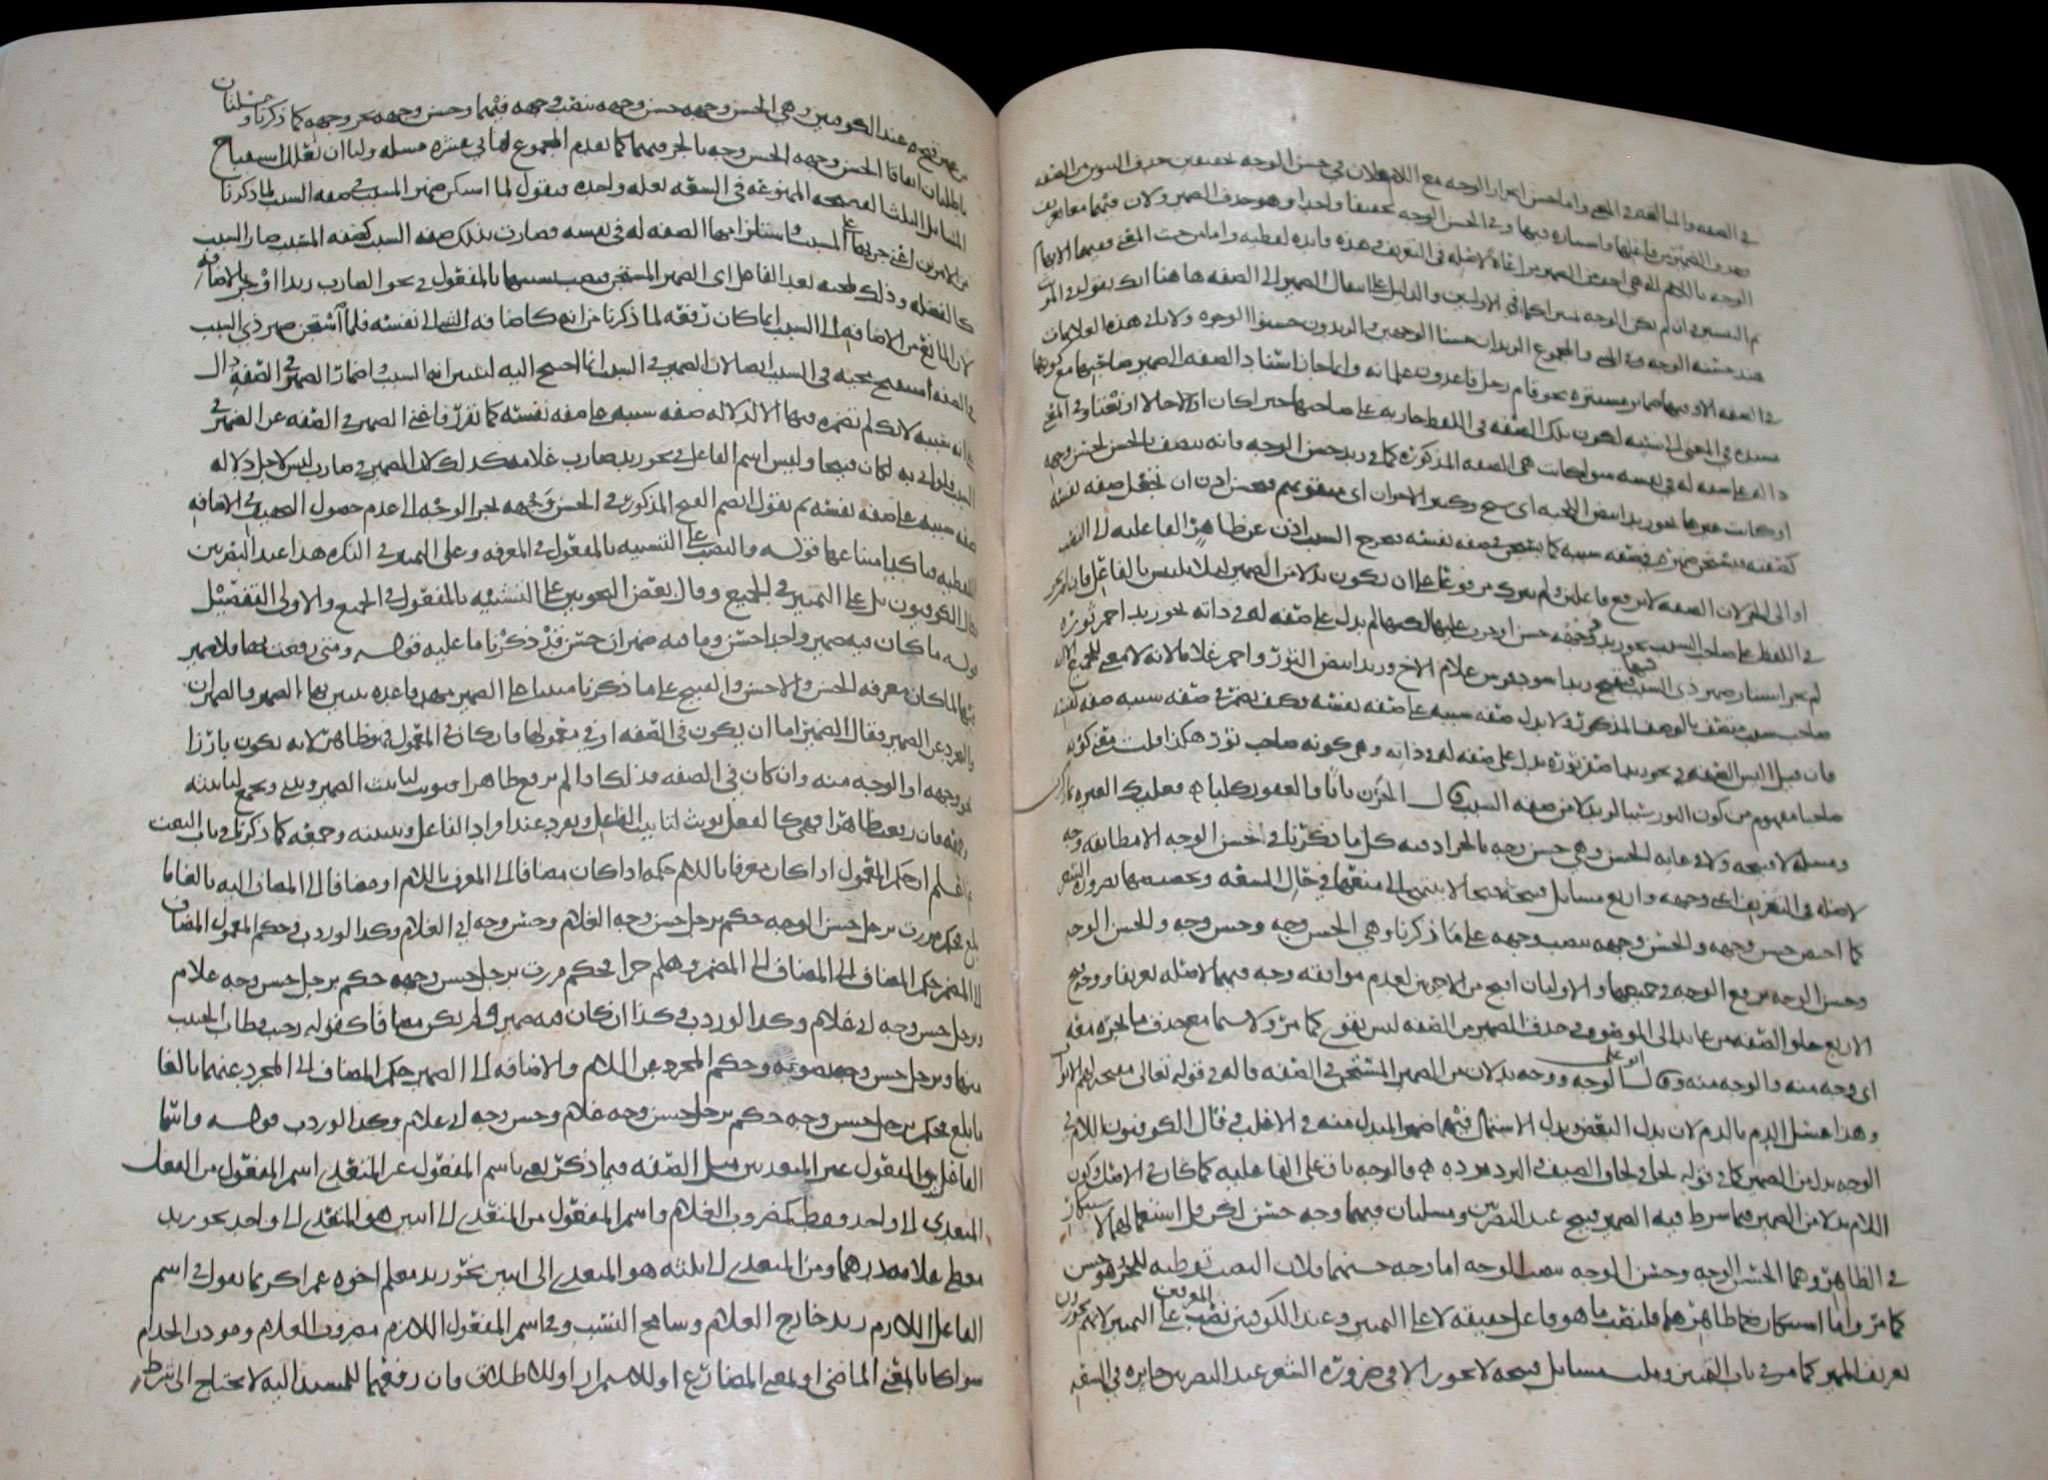 في الصفه والمبالغه في المعنى واما حسن انجرار الوجه مع اللام فلان في حسن الوجه تخفيفين حذف التنوين من الصفه
وحذف الضمير من فاعلها واستتاره فيها وفي الحسن الوجه تخفيفا واحدا وهو حذف الضمير ولان فيهما معا تعريف
الوجه باللام التي هي اخف من الضمير مراعاة لاصله في التعريف في هذه فايده لفظيه واما من حيث المعنى ففيهما الابهام
ثم التبيين ان لم يكن الوجه تمييرا كما في الاولين والدليل على انتقال الضمير الى الصفه ها هنا انك تقول في المؤنث
هند حسنه الوجه وفي المثنى والمجموع الزيدان حسنا الوجهين والزيدون حسنوا الوجوه ولا تلحق هذه العلامات
في الصفه الا وفيها ضماير مستتره نحو قام رجل قاعدون غلمانه وانما جاز اسناد الصفه الى ضمير صاحبها مع كونها
مسنده في المعنى الى سببه لكون تلك الصفه في اللفظ جاريه على صاحبها خبرا كان او حالا او نعتا وفي المعنى
داله على صفه له في نفسه سوا كانت هي الصفه المذكوره كما في زيد حسن الوجه فانه متصف بالحسن لحسن وجهه
او كانت غيرها نحو زيد ابيض اللحيه اى شيخ وكثير الاخوان اى متقو بهم فحسن اذن ان تجعل صفه سببه
كصفه نفسه فيستكن ضميره في صفه سببه كما يستكن في صفه نفسه فيخرج السبب اذن عن ظاهر الفاعليه الى النصب
او الى الجر لان الصفه لا ترفع فاعلين ولم يترك مرفوعا على ان يكون بدلا من الضمير لئلا يلتبس بالفاعل فان لم تجر
في اللفظ على صاحب السبب نحو زيد وجهه حسن او جرت عليه لكنها لم تدل على صفه له في ذاته نحو زيد احمر ثوره
لم يجز استتار ضمير ذي السبب فيها فيقبح زيد اسود فرس غلام الاخ وزيد ابيض الثور واحمر غلاما لانه لا معنى لجميع ذلك
صاحب سبب متصف بالوصف المذكور ولا يدل صفه سببه على صفه نفسه فكيف يضمر في صفه سببه صفه نفسه
فان قيل اليس الصفه في نحو زيد اصفر ثوره يدل على صفه له في ذاته وهي كونه صاحب ثور هكذا قلت معنى كونه
صاحبا مفهوم من كون الثور سببا لزيد لا من صفه السبب قال الحزن بابا والعقور كلبا
ومسله لا قبيحه ولا في غايه الحسن وهي حسن وجه بالجر اذ فيه كل ما ذكرنا في حسن الوجه الا مطابقه وجه
لاصله في التعريف اى وجهه واربع مسائل قبيحه قبحا لا ينتهي الى منعها في حال السعه وتخصيصها بضرورة الشعر
كما اختص حسن وجهه والحسن وجهه بنصب وجهه على ما ذكرنا وهي الحسن وجه وحسن وجه والحسن الوجه
وحسن الوجه برفع الوجه في جميعها والاوليان اقبح من الاخريين لعدم موافقه وجه فيهما لاصله تعريفا ووجه قبح
الاربع خلو الصفه من عايد الى الموصوف وحذف الضمير من الصفه ليس بقوي كما مر ولا سيما مع حذف ما تجره معه
اى وجه منه والوجه منه وقال ابو علي الوجه ووجه بدلان من الضمير المستكن في الصفه قاله في قوله تعالى مفتحة لهم الابواب
وهذا مثل غسل الدم بالدم لان بدل البعض وبدل الاشتمال فيهما ضمير المبدل منه في الاغلب وقال الكوفيون اللام في
الوجه بدل من الضمير كما في قوله لحافي لحاف الضيف والبرد برده فالوجه باق على الفاعليه كما كان في الاصل وكون
اللام بدلا من الضمير فيما شرط فيه الضمير قبيح عند البصريين ومسلتان فيهما وجه حسن لكن قل استعمالهما لاستنكار
في الظاهر وهما الحسن الوجه وحسن الوجه بنصب الوجه اما وجه حسنهما فلان النصب توطيه للجر فهو حسن
كما مر واما استنكارهما ظاهرا فلنصب ما هو فاعل حقيقه لا على التمييز وعند الكوفيين نصب المعرفتين على التمييز لانهم يجوزون
تعريف المميز كما مر في باب التمييز وثلث مسائل قبيحه لا تجوز الا في ضرورة الشعر عند البصريين جايزه في السعه
من غير قبح عند الكوفيين وهي الحسن وجهه حسن وجهه بنصب وجهه فيهما وحسن وجهه بجر وجهه كما ذكرنا ومسلتان
باطلتان اتفاقا الحسن وجهه الحسن وجه بالجر فيهما كما تقدم المجموع ثماني عشره مسله ولنا ان نعلل استقباح
المسائل الثلث القبيحه الممنوعه في السعه بعله واحده فنقول لما استكن ضمير المسبب في صفه السبب لما ذكرنا
من الامرين اعني جريها على المسبب واستلزامها الصفه له في نفسه فصارت بذلك صفه السبب كصفه المسبب صار السبب
كالفضله وذلك لمجيه بعد الفاعل اى الضمير المستكن فنصب تشبيها بالمفعول في نحو الضارب زيدا او جر بالاضافه
لان المانع من الاضافه الى السبب انما كان رفعه لما ذكرنا من انه كاضافه الشى الى نفسه فلما استكن ضمير ذي السبب
في الصفه استقبح مجيه في السبب ايضا لان الضمير في السبب انما احتيج اليه لتبيين انه السبب واضمار الضمير في الصفه دال
على انه سببه لانك لم تضمره فيها الا لدلاله صفه سببه على صفه نفسه كما تقرر فاغنى الضمير في الصفه عن الضمير في
السبب فلو اتى به لكان قبيحا وليس اسم الفاعل في نحو زيد ضارب غلامه كذلك لان الضمير في ضارب ليس لاجل دلاله
صفه سببه على صفه نفسه ثم نقول انضم القبح المذكور في الحسن وجهه بجر الوجه الى عدم حصول التخفيف في الاضافه
اللفظيه فتاكد امتناعها قوله والنصب على التشبيه بالمفعول في المعرفه وعلى التمييز في النكره هذا عند البصريين
وقال الكوفيون بل على التمييز في الجميع وقال بعض النحويين على التشبيه بالمفعول في الجميع والاولى التفصيل
قوله ما كان فيه ضمير واحد احسن وما فيه ضميران حسن قد ذكرنا ما عليه قوله ومتى رفعت بها فلا ضمير
فيها لما كان معرفه الحسن والاحسن والقبيح على ما ذكرنا مبنيا على الضمير مهد قاعده يتبين بها الضمير والضميران
والتجرد عن الضمير فقال الضمير اما ان يكون في الصفه او في معمولها فان كان في المعمول فهو ظاهر لانه يكون بارزا
نحو وجهه او الوجه منه وان كان في الصفه فذلك اذا لم ترفع ظاهرا فتونث لتانيث الضمير وتثنى وتجمع لتثنيته
وجمعه فان رفعت ظاهرا فهي كالفعل تونث لتانيث الفاعل وتفرد عند افراد الفاعل وتثنيته وجمعه كما ذكرنا في باب النعت
واعلم ان حكم المعمول اذا كان معرفا باللام حكمه اذا كان مضافا الى المعرف باللام او مضافا الى المضاف اليه بالغا ما
بلغ فحكم مررت برجل حسن الوجه حكم برجل حسن وجه الغلام وحسن وجه ابي الغلام وكذا لو زدت وحكم المعمول المضاف
الى المضمر حكم المضاف الى المضاف الى المضمر وهلم جرا فحكم مررت برجل حسن وجهه حكم برجل حسن وجه غلامه
وبرجل حسن وجه ابي غلامه وكذا لو زدت وكذا ان كان فيه ضمير ولم يكن مضافا كقوله رحب قطاب الجيب
منها وبرجل حسن وجه يصونه وحكم المجرد عن اللام والاضافه الى الضمير حكم المضاف الى المجرد عنهما بالغا
ما بلغ فحكم برجل حسن وجه حكم برجل حسن وجه غلام وحسن وجه ابي غلام وكذا لو زدت قوله واسما
الفاعل والمفعول غير المتعديين مثل الصفه فيما ذكر يعني باسم المفعول غير المتعدي اسم المفعول من الفعل
المتعدي الى واحد فقط كمضروب الغلام واسم المفعول من المتعدي الى اثنين هو المتعدي الى واحد نحو زيد
معطى غلامه درهما ومن المتعدي الى ثلثه هو المتعدي الى اثنين نحو زيد معلم اخوه عمرا كريما تقول في اسم
الفاعل اللازم زيد خارج الغلام وسامح النسب وفي اسم المفعول اللازم مضروب الغلام ومودب الخدام
سوا كانا بمعنى الماضي او بمعنى المضارع او للاستمرار او للاطلاق فان رفعهما للمسند اليه لا يحتاج الى شرط